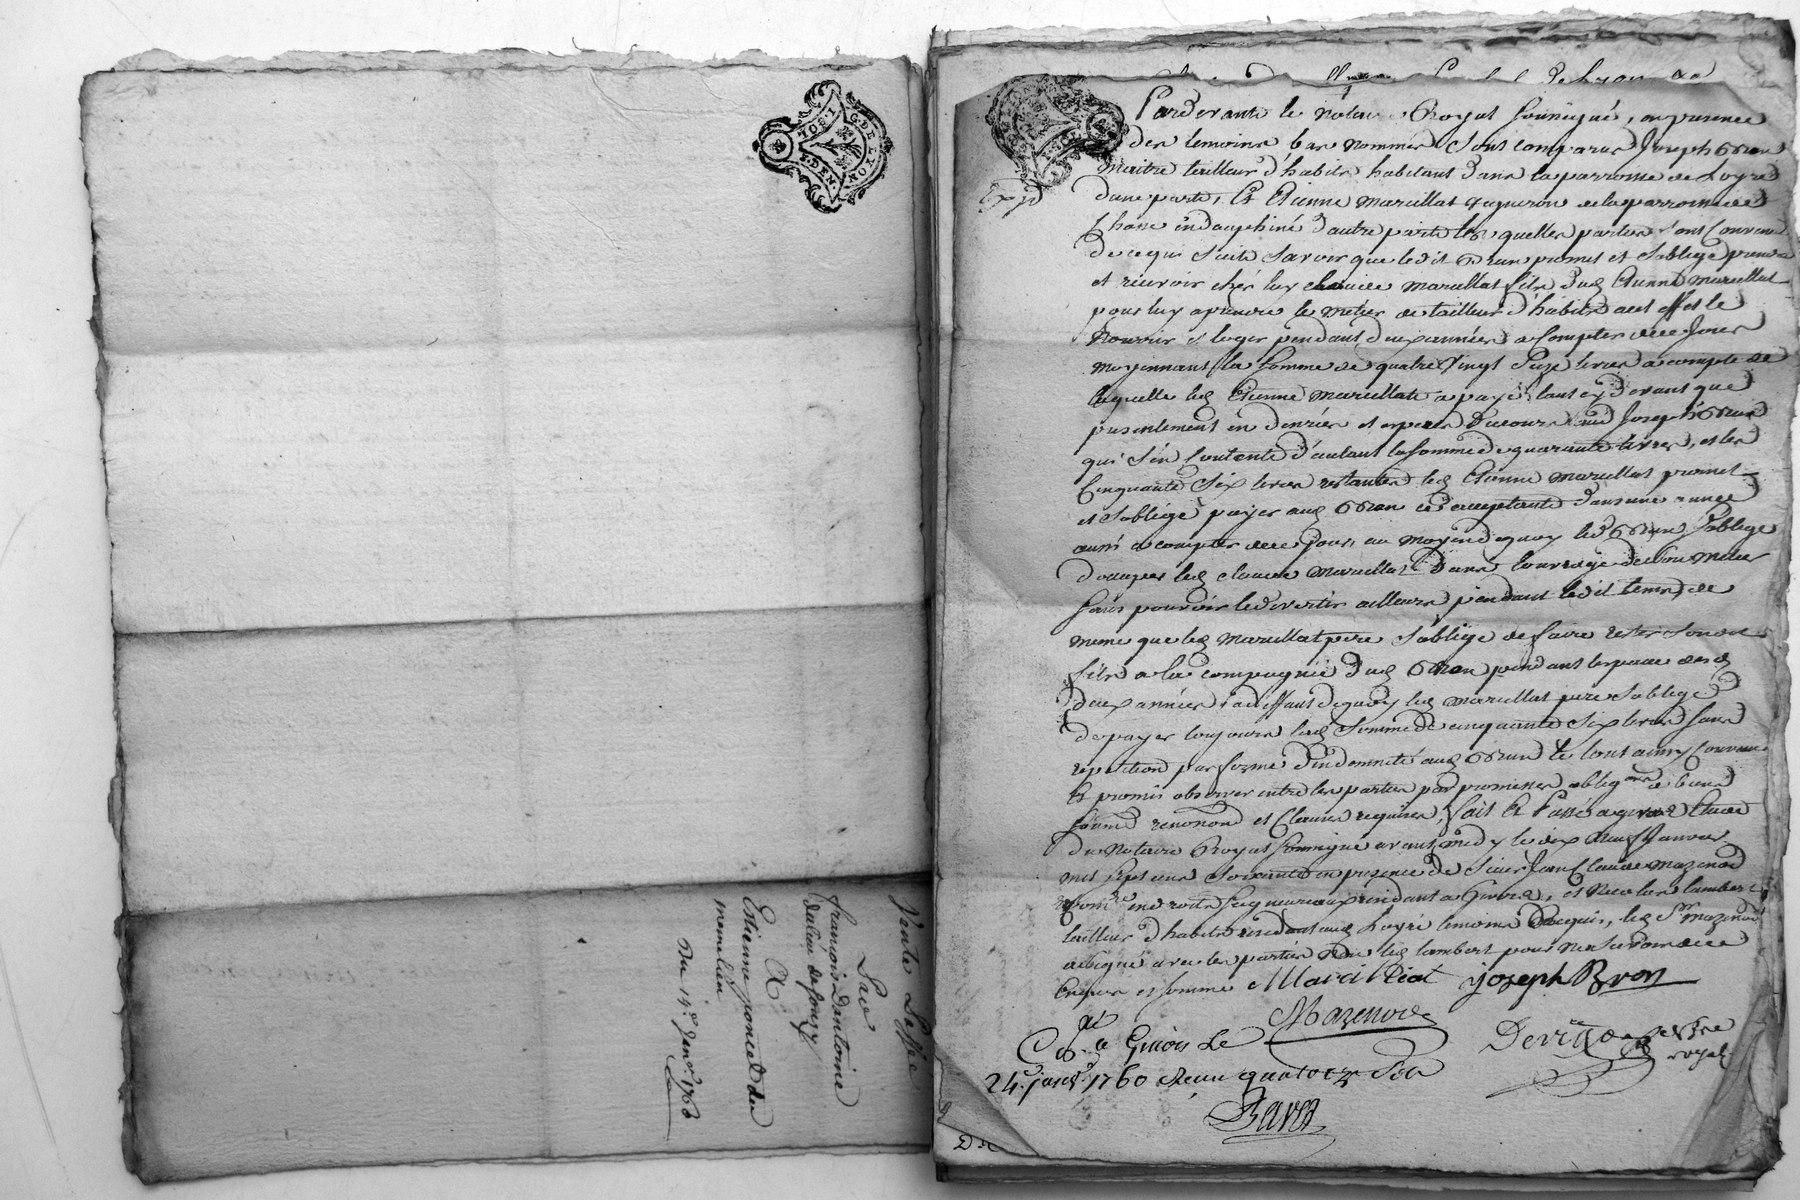 G. DE LYON
Vente Passé
Par
françois Dantoine
A
Etienne poncet du
Du 14e Janvr. 1760
Pardevant le Notaire Royal soussigné, en presence
des temoins bas nommés sont comparus Joseph Bron
maitre tailleur d'habits habitant dans la parroisse de Loyre
d'une parte, Et Etienne Marcillat vigneron de la parroisse de
en dauphiné d'autre parte lesquelles parties sont convenus
de ce qui suite savoir que ledit Bron promet et s'oblige prendre
et recevoir chés luy claude Marcillat fils dud Etienne Marcillat
pour luy aprendre le métier de tailleur d'habits a cet effet le
nourrir et loger pendant deux années a compter de ce jour
moyennant la somme de quatre vingt seize livres a compte de
laquelle led Etienne Marcillat a payé tant cy devant que
presentement en deniers et especes de cours aud Joseph Bron
qui s'en contente d'autant la somme de quarante livres, et les
cinquante six livres restantes led Etienne Marcillat promet
et s'oblige payer aud Bron ce acceptante dans une année
aussi a compter de ce jour, au moyen de quoy led Bron s'oblige
d'occuper led claude Marcillat dans l'ouvrage de son metier
sans pouvoir le divertir ailleurs pendant ledit tems, de
meme que led Marcillat pere s'oblige de faire rester sond
fils a la compagnie dud Bron pendant l'espace desd
deux années, a deffaut de quoy led Marcillat pere s'oblige
de payer toujours lad somme de cinquante six livres sans
repetition par forme d'indemnité aud Bron le tout ainsy convenu
Et promis observer entre les parties par promesses obligons a
renonons et clauses requises, fait Et Passé a givors Etude
du Notaire Royal soussigné avant midy le dix neuf Janvier
mil sept cens soixante en presence de sieur Jean Claude Mazenod
en droits seigneuriaux residant a Givors, et Nicolas Lambert
tailleur d'habits residant aud Loyre temoins requis, led Sr Mazenod
a signé avec les parties non led Lambert pour ne savoir de ce
Enquis et sommé Marcilliat joseph Bron
Mazenod
Cé a Givors Le
24e janvr. 1760 Reçu quatorze sols
royal